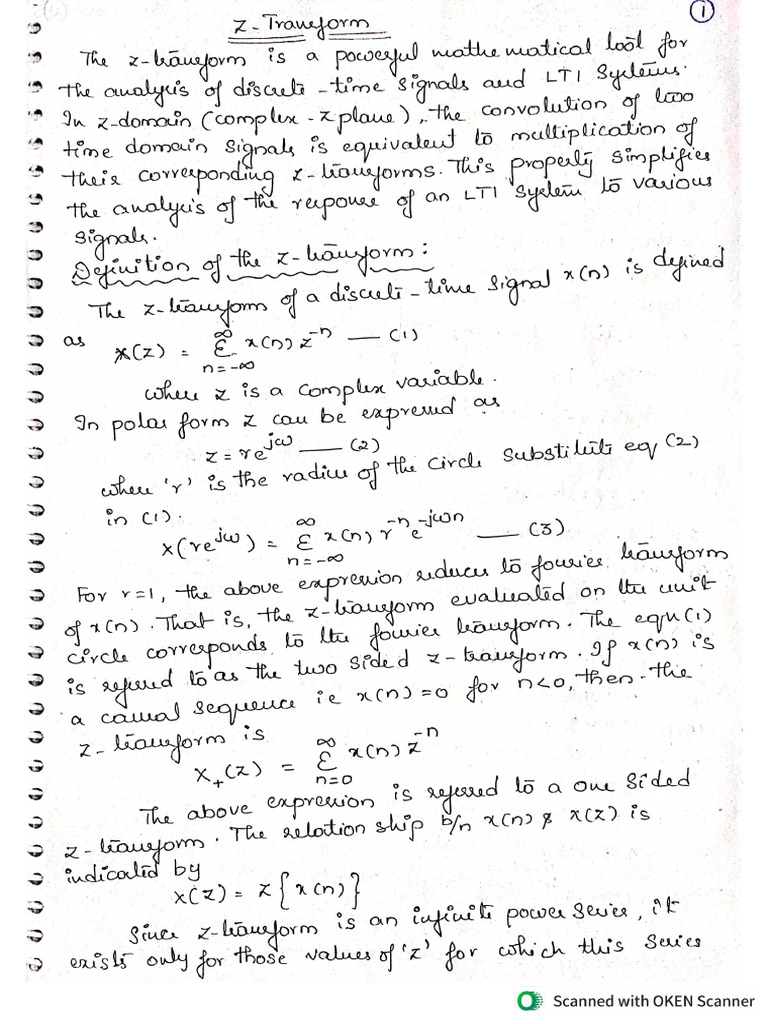 ①
Z-Transform
The z-transform is a powerful mathematical tool for
the analysis of discrete-time signals and LTI systems.
In z-domain (complex-z plane), the convolution of two
time domain signals is equivalent to multiplication of
their corresponding z-transforms. This property simplifies
the analysis of the response of an LTI system to various
signals.
Definition of the z-transform:
The z-transform of a discrete-time signal x(n) is defined
as X(z) = Σ_{n=-∞}^{∞} x(n) z^{-n} — (1)
where z is a complex variable.
In polar form z can be expressed as
z = re^{jω} — (2)
where 'r' is the radius of the circle substitute eq (2)
in (1).
X(re^{jω}) = Σ_{n=-∞}^{∞} x(n) r^{-n} e^{-jωn} — (3)
For r=1, the above expression reduces to fourier transform
of x(n). That is, the z-transform evaluated on the unit
circle corresponds to the fourier transform. The eqn (1)
is referred to as the two sided z-transform. If x(n) is
a causal sequence ie x(n)=0 for n<0, then the
z-transform is
X_+(z) = Σ_{n=0}^{∞} x(n) z^{-n}
The above expression is referred to a one sided
z-transform. The relation ship b/n x(n) & x(z) is
indicated by
X(z) = Z{x(n)}
Since z-transform is an infinite power series, it
exists only for those values of 'z' for which this series
Scanned with OKEN Scanner